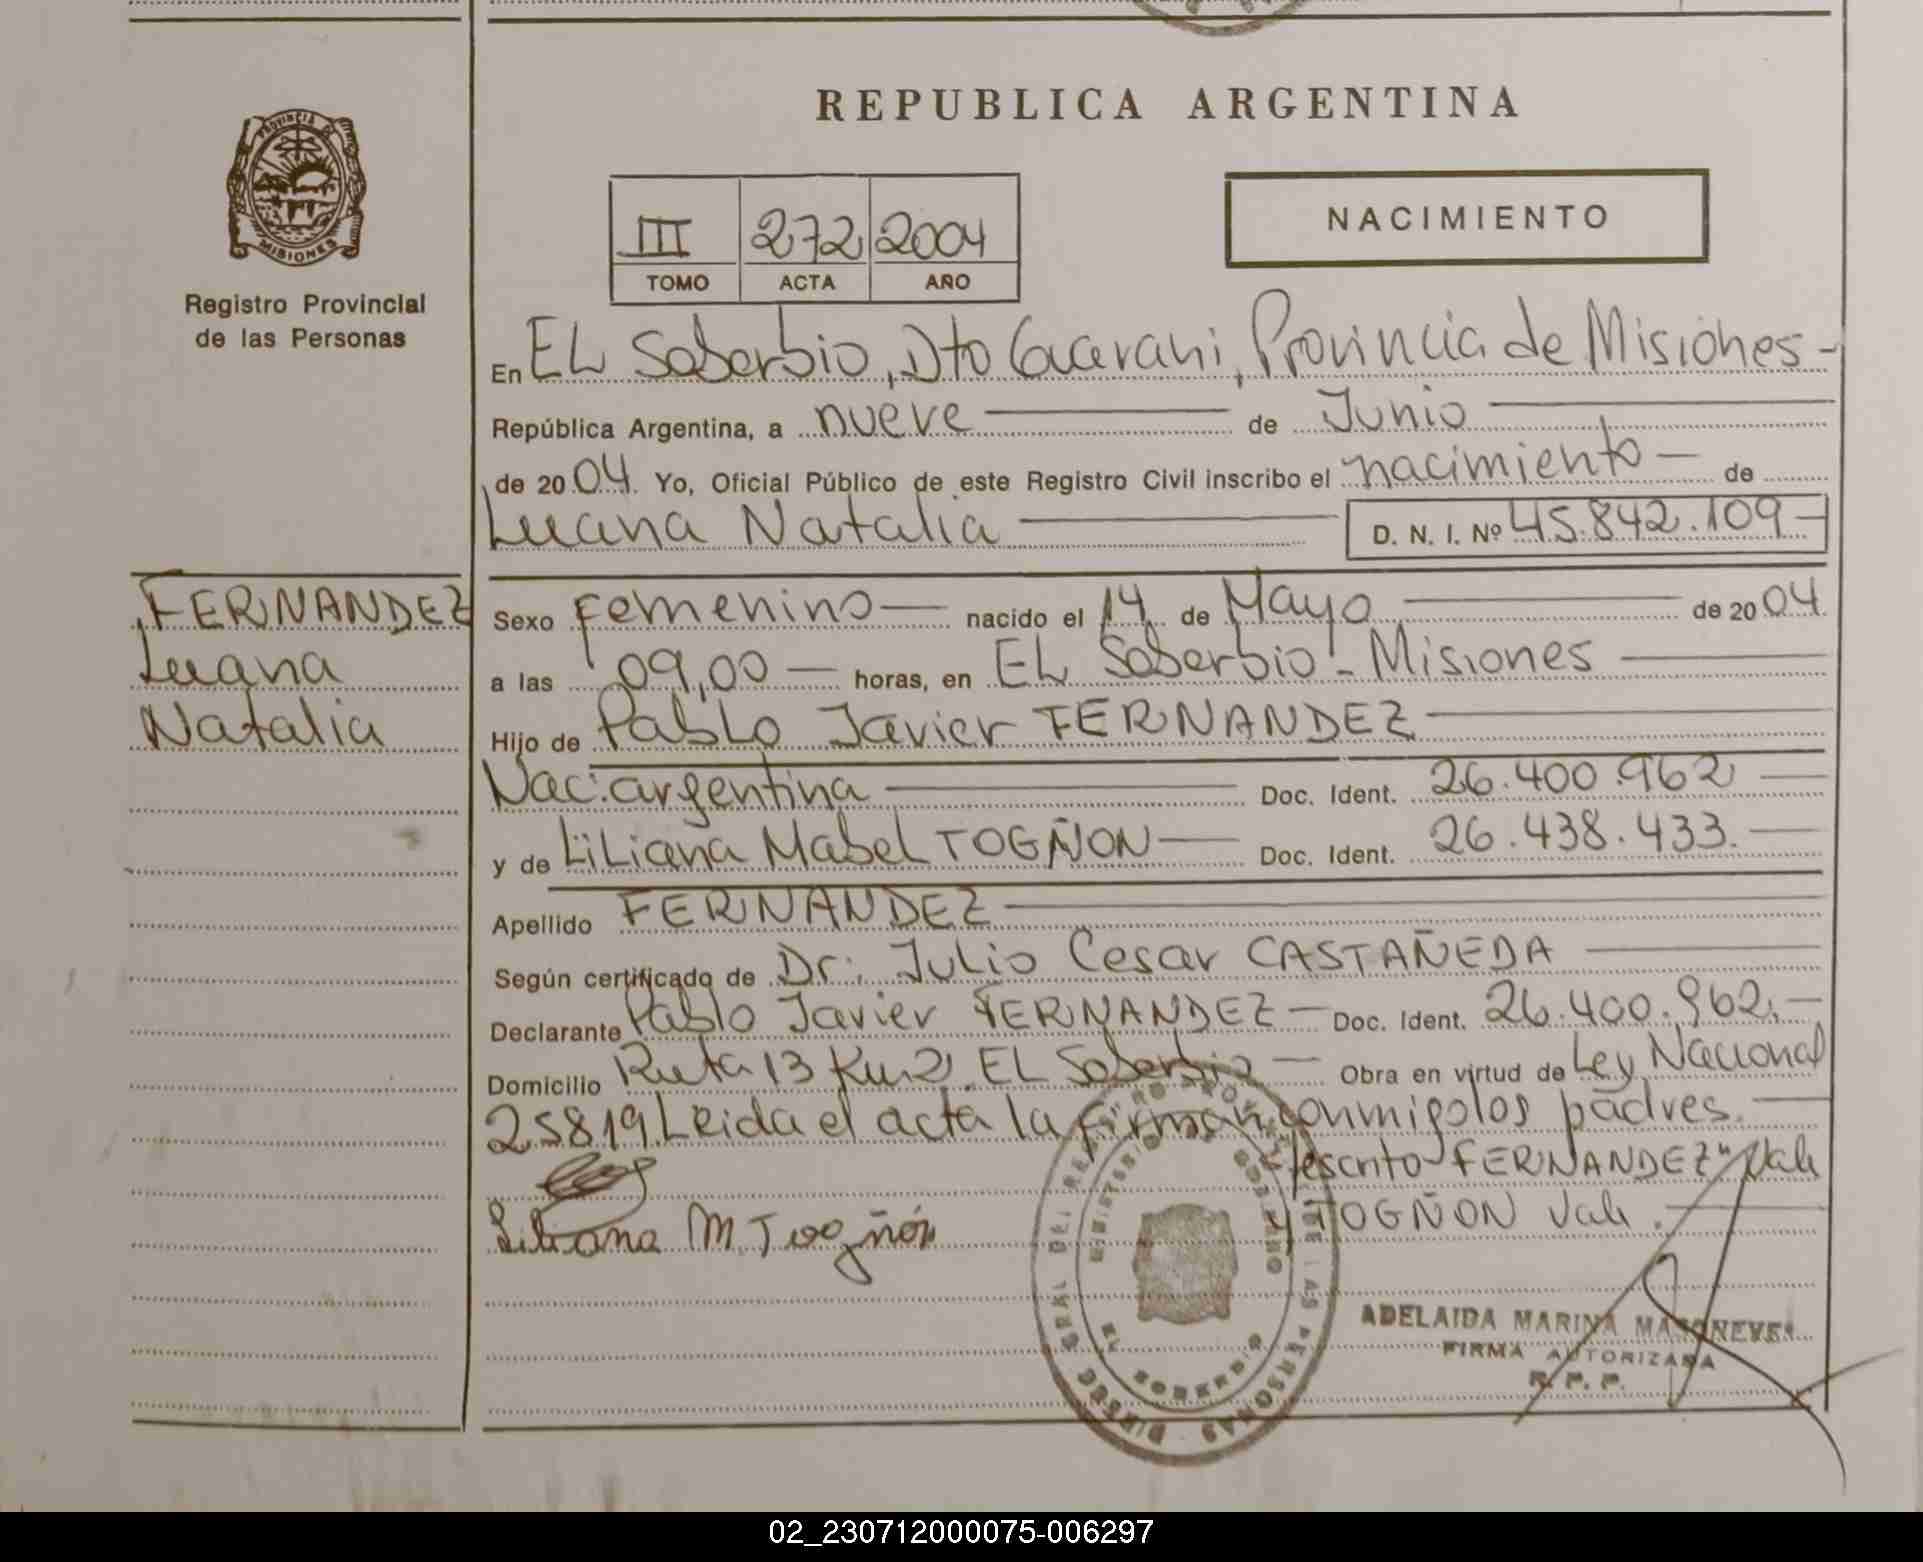 REPUBLICA ARGENTINA
PROVINCIA DE
MISIONES
Registro Provincial
de las Personas
III 272 2004
TOMO ACTA AÑO
NACIMIENTO
En EL Soberbio, Dto Guarani, Provincia de Misiones-
República Argentina, a nueve de Junio
de 2004. Yo, Oficial Público de este Registro Civil inscribo el nacimiento de
Luana Natalia D. N. I. Nº 45.842.109-
FERNANDEZ
Luana
Natalia
Sexo Femenino nacido el 14 de Mayo de 2004
a las 09,00 horas, en EL Soberbio - Misiones
Hijo de Pablo Javier FERNANDEZ
Nac. argentina Doc. Ident. 26.400.962
y de LiLiana Mabel TOGÑON Doc. Ident. 26.438.433.
Apellido FERNANDEZ
Según certificado de Dr. Julio Cesar CASTAÑEDA
Declarante Pablo Javier FERNANDEZ Doc. Ident. 26.400.962.
Domicilio Ruta 13 Km 2. EL Soberbio Obra en virtud de Ley Nacional
25819. Leida el acta la firman conmigo los padres.
FERNANDEZ" Vale
Liliana M Togñón
y TOGÑON Vale.
ADELAIDA MARINA
FIRMA AUTORIZADA
R. P. P.
MINISTERIO DE GOBIERNO
EL SOBERBIO
02_230712000075-006297